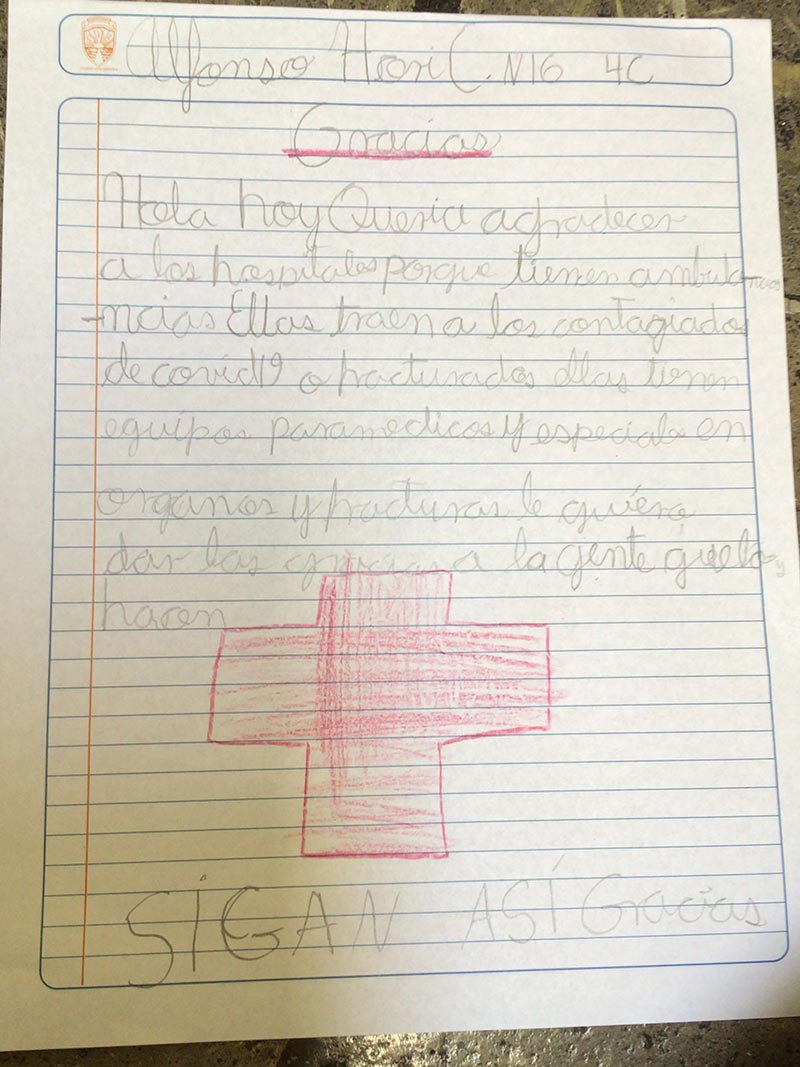 Alfonso C. N16 4C
Gracias
Hola hoy Queria agradecer
a los hospitales porque tienen ambula-
-ncias Ellas traen a los contagiados
de covid19 o fracturados ellas tienen
equipos paramedicos y especiales en
organos y fracturas le quiero
dar las gracias a la gente que lo
hacen
SÍGAN ASÍ Gracias